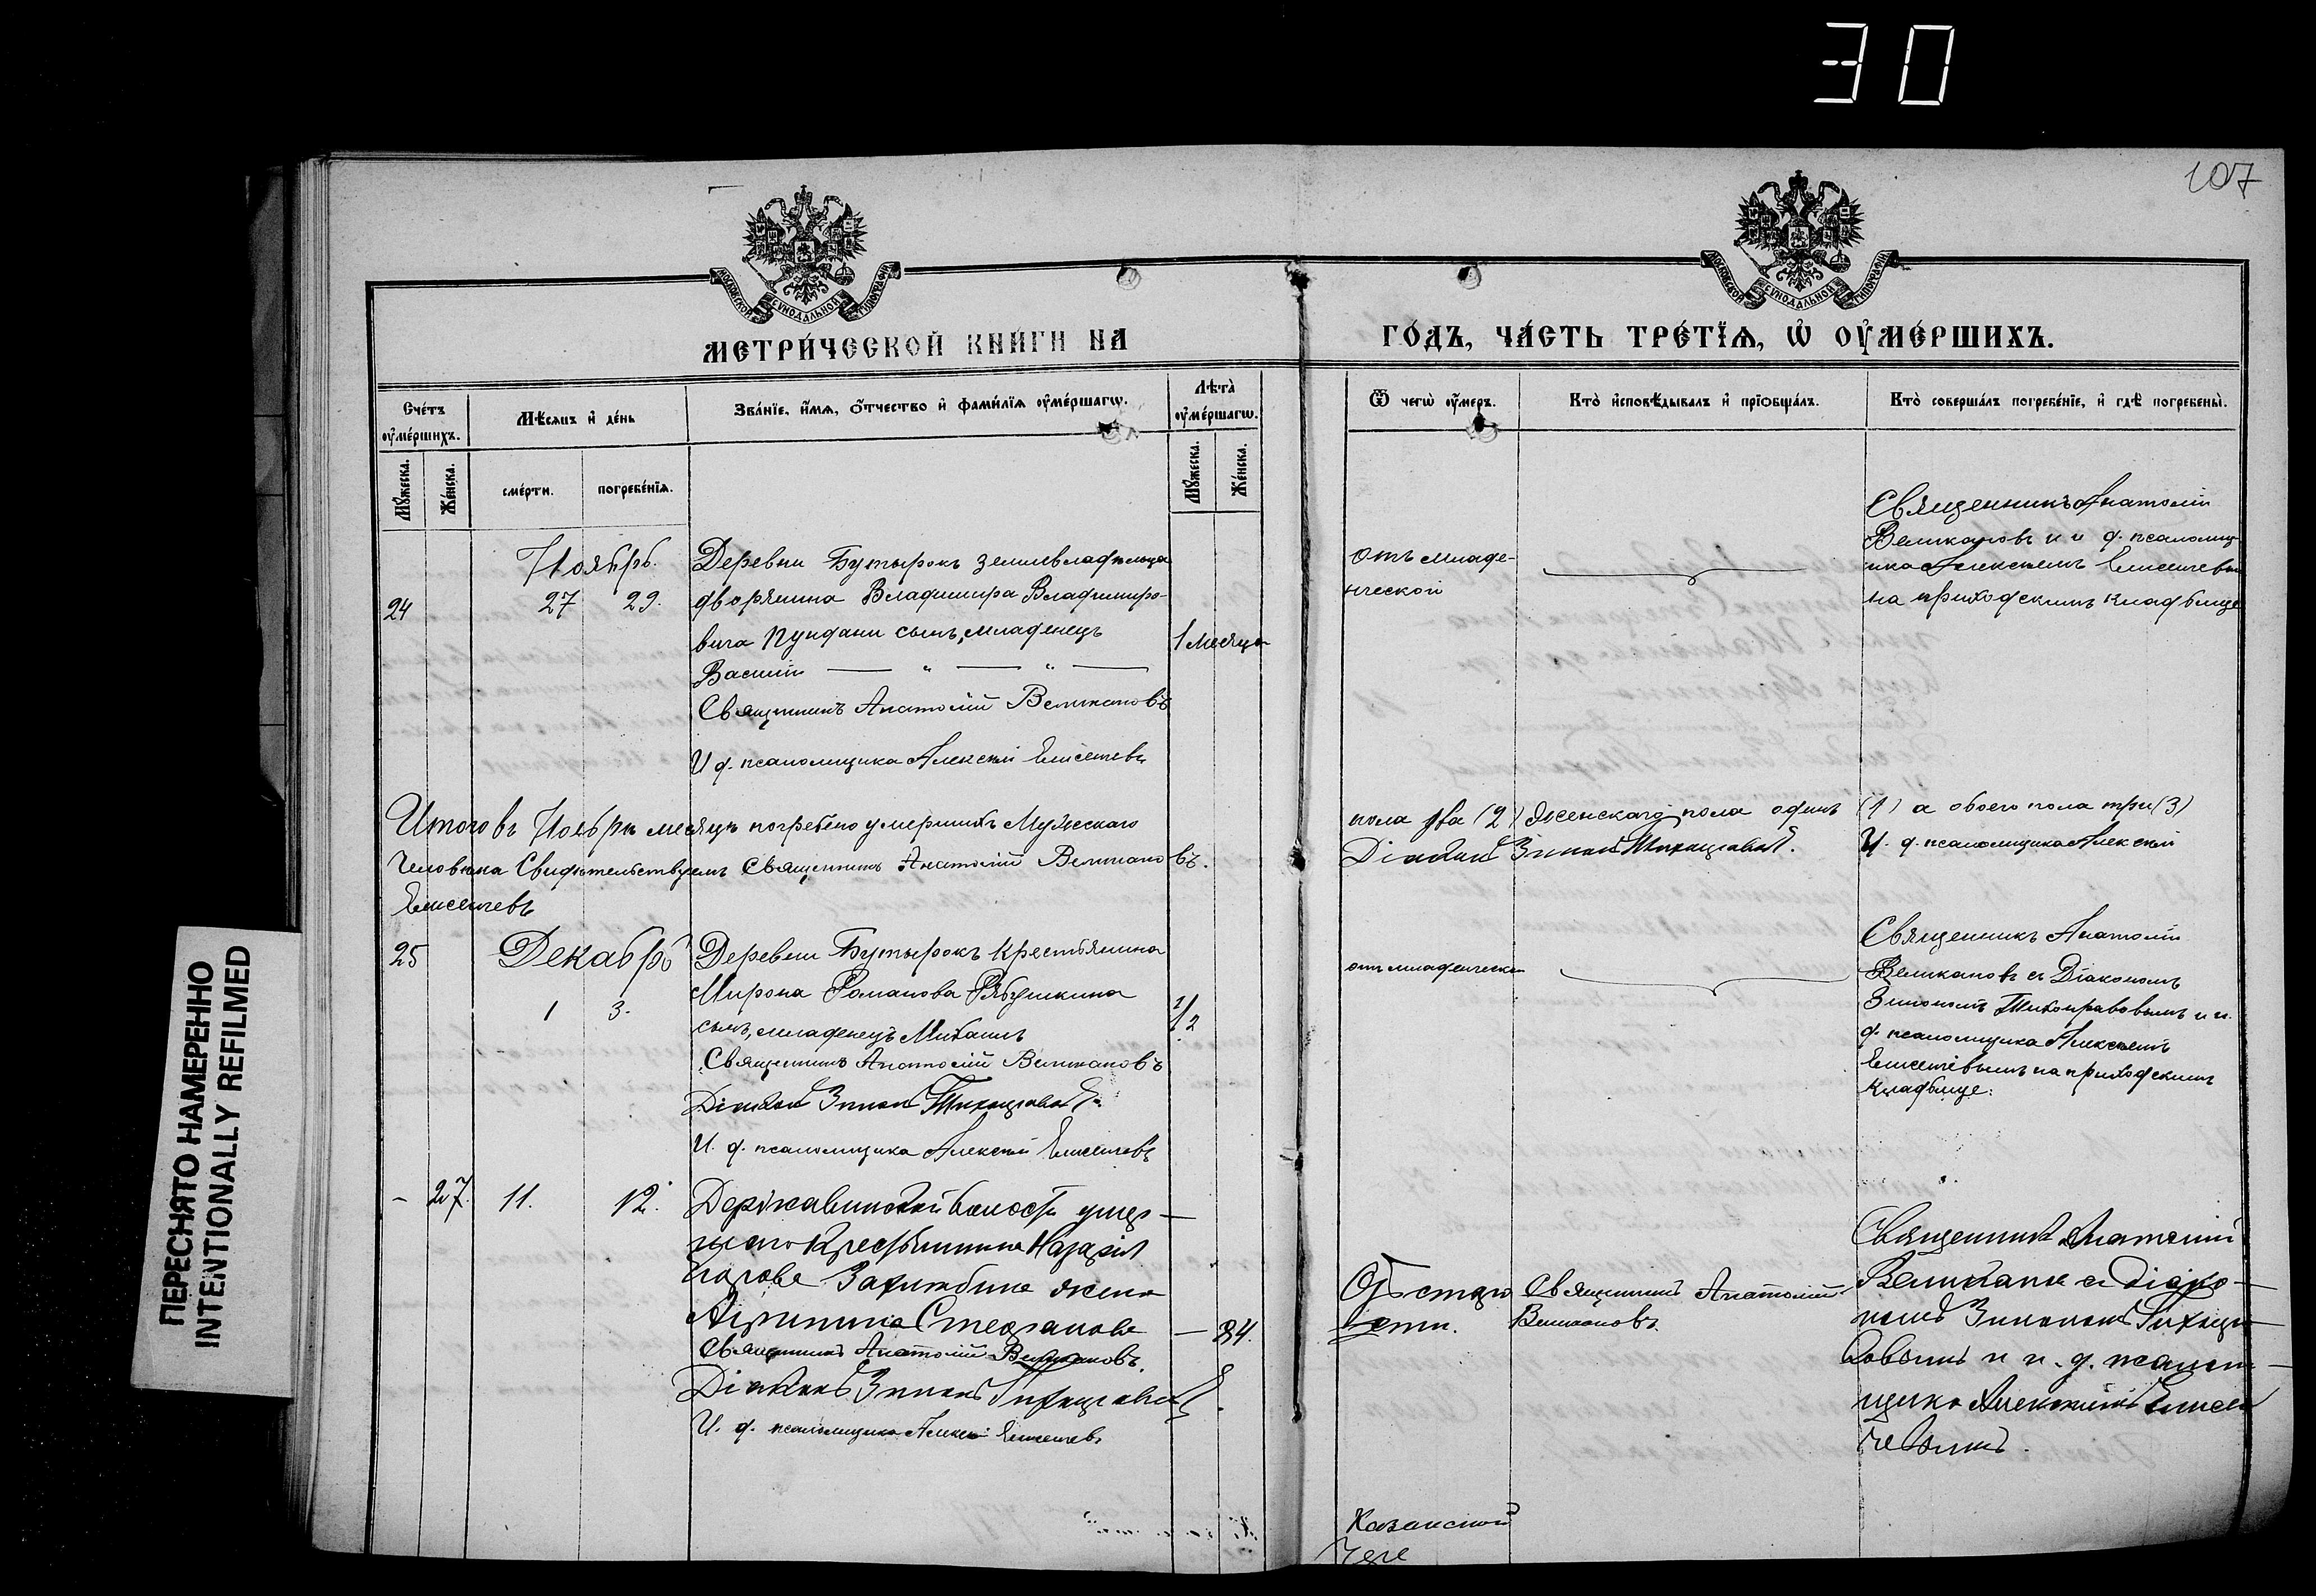 30
107
МОСКОВСКОЙ СѴНОДАЛЬНОЙ ТИПОГРАФІИ
МОСКОВСКОЙ СѴНОДАЛЬНОЙ ТИПОГРАФІИ
МЕТРИ́ЧЕСКОЙ КНИ́ГИ НА
ГО́ДЪ, ЧА́СТЬ ТРЕ́ТЇѦ, Ѽ ОУ҆МЕ́РШИХЪ.
Сче́тъ оу҆ме́ршихъ.
Мꙋ́жеска.
Же́нска.
Мѣ́сѧцъ и҆ де́нь
сме́рти.
погребе́нїѧ.
Зва́нїе, и҆́мѧ, ѻ҆́тчество и҆ фами́лїѧ оу҆ме́ршагѡ.
Лѣ̀та оу҆ме́ршагѡ.
Мꙋ́жеска.
Же́нска.
Ѿ чегѡ̀ оу҆́меръ.
Кто̀ и҆сповѣ́дывалъ и҆ прїѻбща́лъ.
Кто̀ соверша́лъ погребе́нїе, и҆ гдѣ̀ погребены̀.
Ноябрь.
24
27 29.
Деревни Бутырокъ землевладѣльца
дворянина Владимира Владимиро-
вича сынъ, младенецъ
Василій
1 месяца
Священникъ Анатолій Великановъ
И д. псаломщика Алексѣй Елисеичевъ
отъ младе-
нческой
Священникъ Анатолій
Великановъ и и д. псаломщ-
ика Алексѣемъ
на приходскимъ кладбище
Итого въ Ноябрѣ месяцѣ погребено умершихъ Мужескаго
пола два (2) Женскаго пола одинъ (1) а обоего пола три (3)
Человѣка Свидѣтельствуемъ Священникъ Анатолій Великановъ.
Діаконъ Зинонъ Тихонравовъ.
И. д. псаломщика Алексѣй
Елисеичевъ
25
Декабрь
1 3.
Деревни Бутырокъ крестьянина
Мирона Романова Рябушкина
сынъ, младенецъ Михаилъ
1/2
Священникъ Анатолій Великановъ
Діаконъ Зинонъ Тихонравовъ
И. д. псаломщика Алексѣй Елисеичевъ
отъ младенческой
Священникъ Анатолій
Великановъ съ Діакономъ
Зинономъ Тихонравовымъ и и.
д. псаломщика Алексѣемъ
Елисеичевымъ на приходскимъ
кладбище.
– 27. 11. 12.
Державинской волости умер-
шаго Крестьянина Назарія
Егорова жена
Агрипина Стефанова
— 84.
Священникъ Анатолій Великановъ.
Діаконъ Зинонъ Тихонравовъ
И. д. псаломщика Алексѣй Елисеичевъ
Отъ старо
сти.
Священникъ Анатолій
Великановъ.
Священникъ Анатолій
Великановъ съ діако-
номъ Зинономъ Тихонра-
вовымъ и и. д. псалом-
щика Алексѣемъ Елисеи
чевымъ.
Казанской
ПЕРЕСНЯТО НАМЕРЕННО
INTENTIONALLY REFILMED